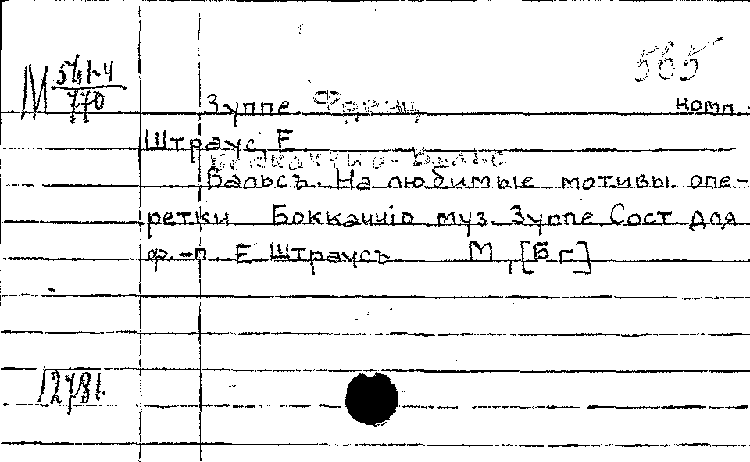 565
М 541-4
770
Зуппе Франц комп.
Штраус, Е
Боккаччио-Вальс
Вальсъ. На любимые мотивы опе-
ретки Боккаччiо муз. Зуппе Сост для
ф.-п. Е Штраусъ М, [Б г]
12781.